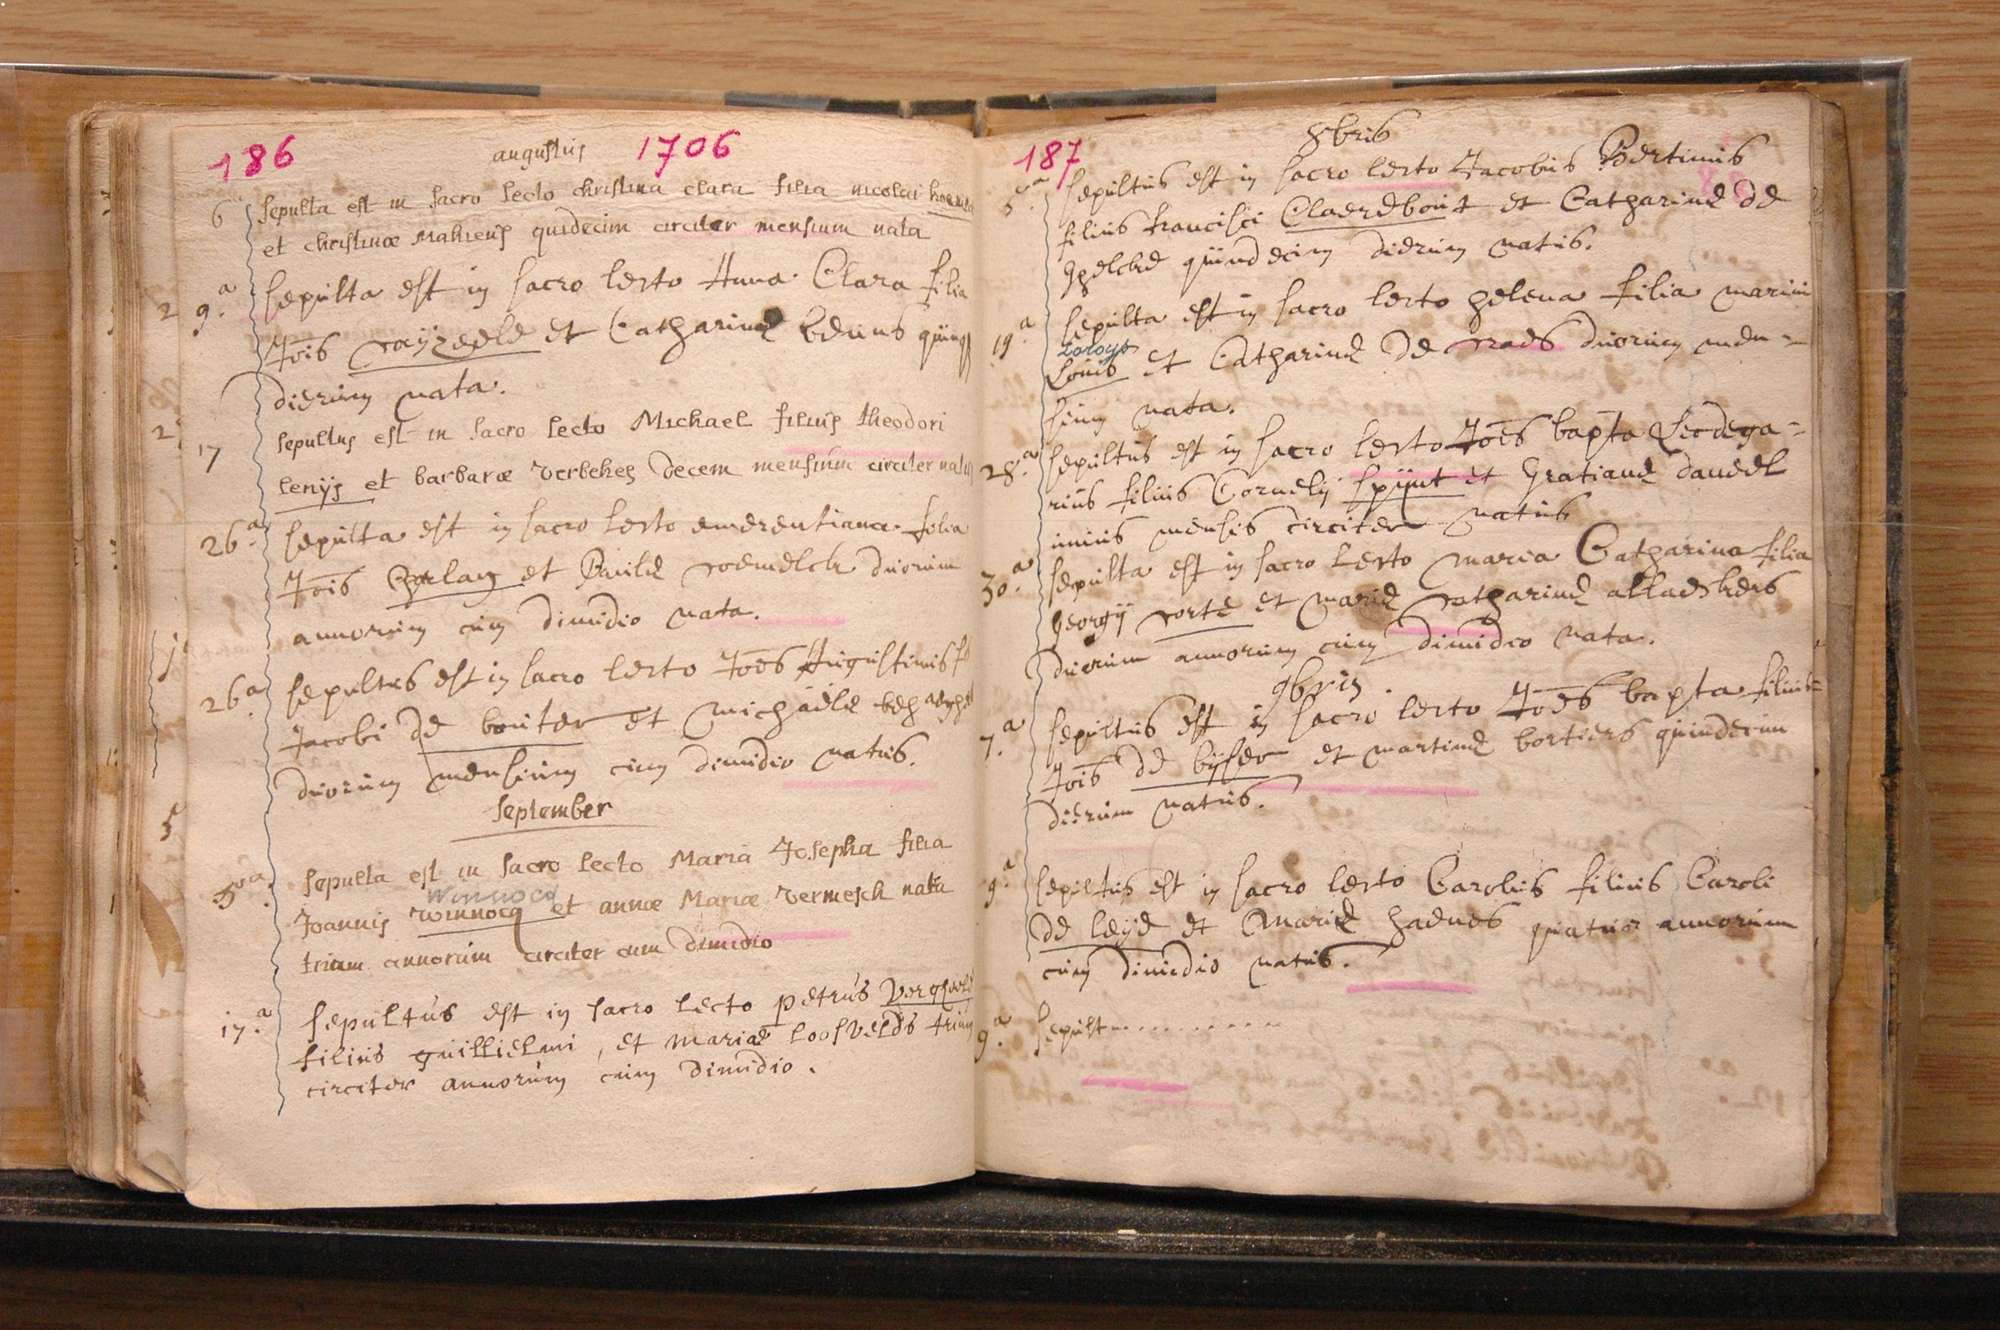 186
augustus
1706
6 sepulta est in sacro lecto christina clara filia nicolai
et christinæ Mahieus quidecim circiter mensium nata
9.a sepulta est in sacro lecto Anna Clara filia
Jois rayzeele et Catharinæ quinq
dierum nata.
17 sepultus est in sacro lecto Michael filius theodori
lenijs et barbaræ verbekes decem mensium circiter natus
26.a sepulta est in sacro lecto emerentiana filia
Jois et roemelck duorum
annorum cum dimidio nata.
26.a sepultus est in sacro lecto Joes Augustinus
Jacobi de bouter et Michaele
duorum mensium cum dimidio natus.
september
5.a sepulta est in sacro lecto Maria Josepha filia
Winnocq
Joannis winnocq et annæ Mariæ vermesch nata
trium annorum circiter cum dimidio
17.a sepultus est in sacro lecto petrus
filius guillielmi, et mariæ loosvelds trium
circiter annorum cum dimidio.
187
8bris
5.a sepultus est in sacro lecto Jacobus Bertinus
filius francisci Claerebout et Catharinæ de
quindecim dierum natus.
19.a sepulta est in sacro lecto helena filia marini
Loloys
Louis et Catharinæ de raes duorum men=
sium nata.
28.a sepultus est in sacro lecto Joes bapta Leodega=
rius filius Cornelij spijnt et gratianæ daneel
unius mensis circiter natus
30.a sepulta est in sacro lecto maria Catharina filia
georgij vorte et mariæ catharinæ
duorum annorum cum dimidio nata.
9bris.
7.a sepultus est in sacro lecto Joes bapta filius
Jois de byser et martinæ bortiers quindecim
dierum natus.
9.a sepultus est in sacro lecto Carolus filius Caroli
de leye et Mariæ haenes quatuor annorum
cum dimidio natus.
9.a sepult...........